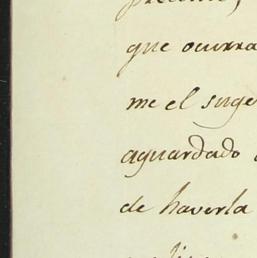 que ocurra
me el suge
aguardado
de haverla